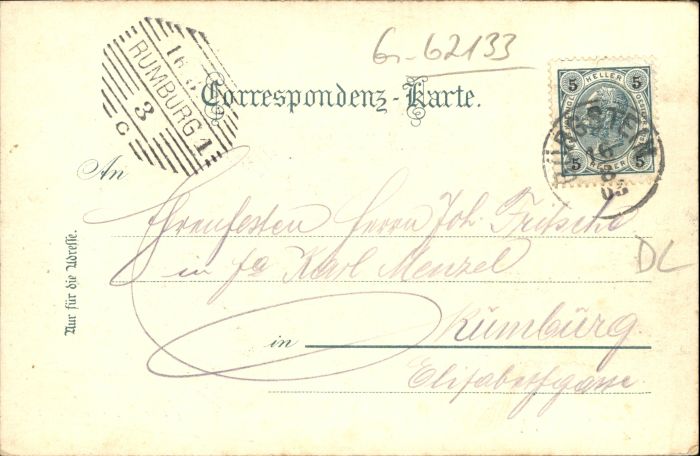 G-62133
RUMBURG 1
16
3
C
Correspondenz-Karte.
5 HELLER 5
5 HELLER 5
BÜRGSTEIN
16
8
03
An
Ehrenfesten Herrn Joh. Fritsche
in fa Karl Menzel
DL
in Rümbürg.
Elisabethgasse.
Nur für die Adresse.